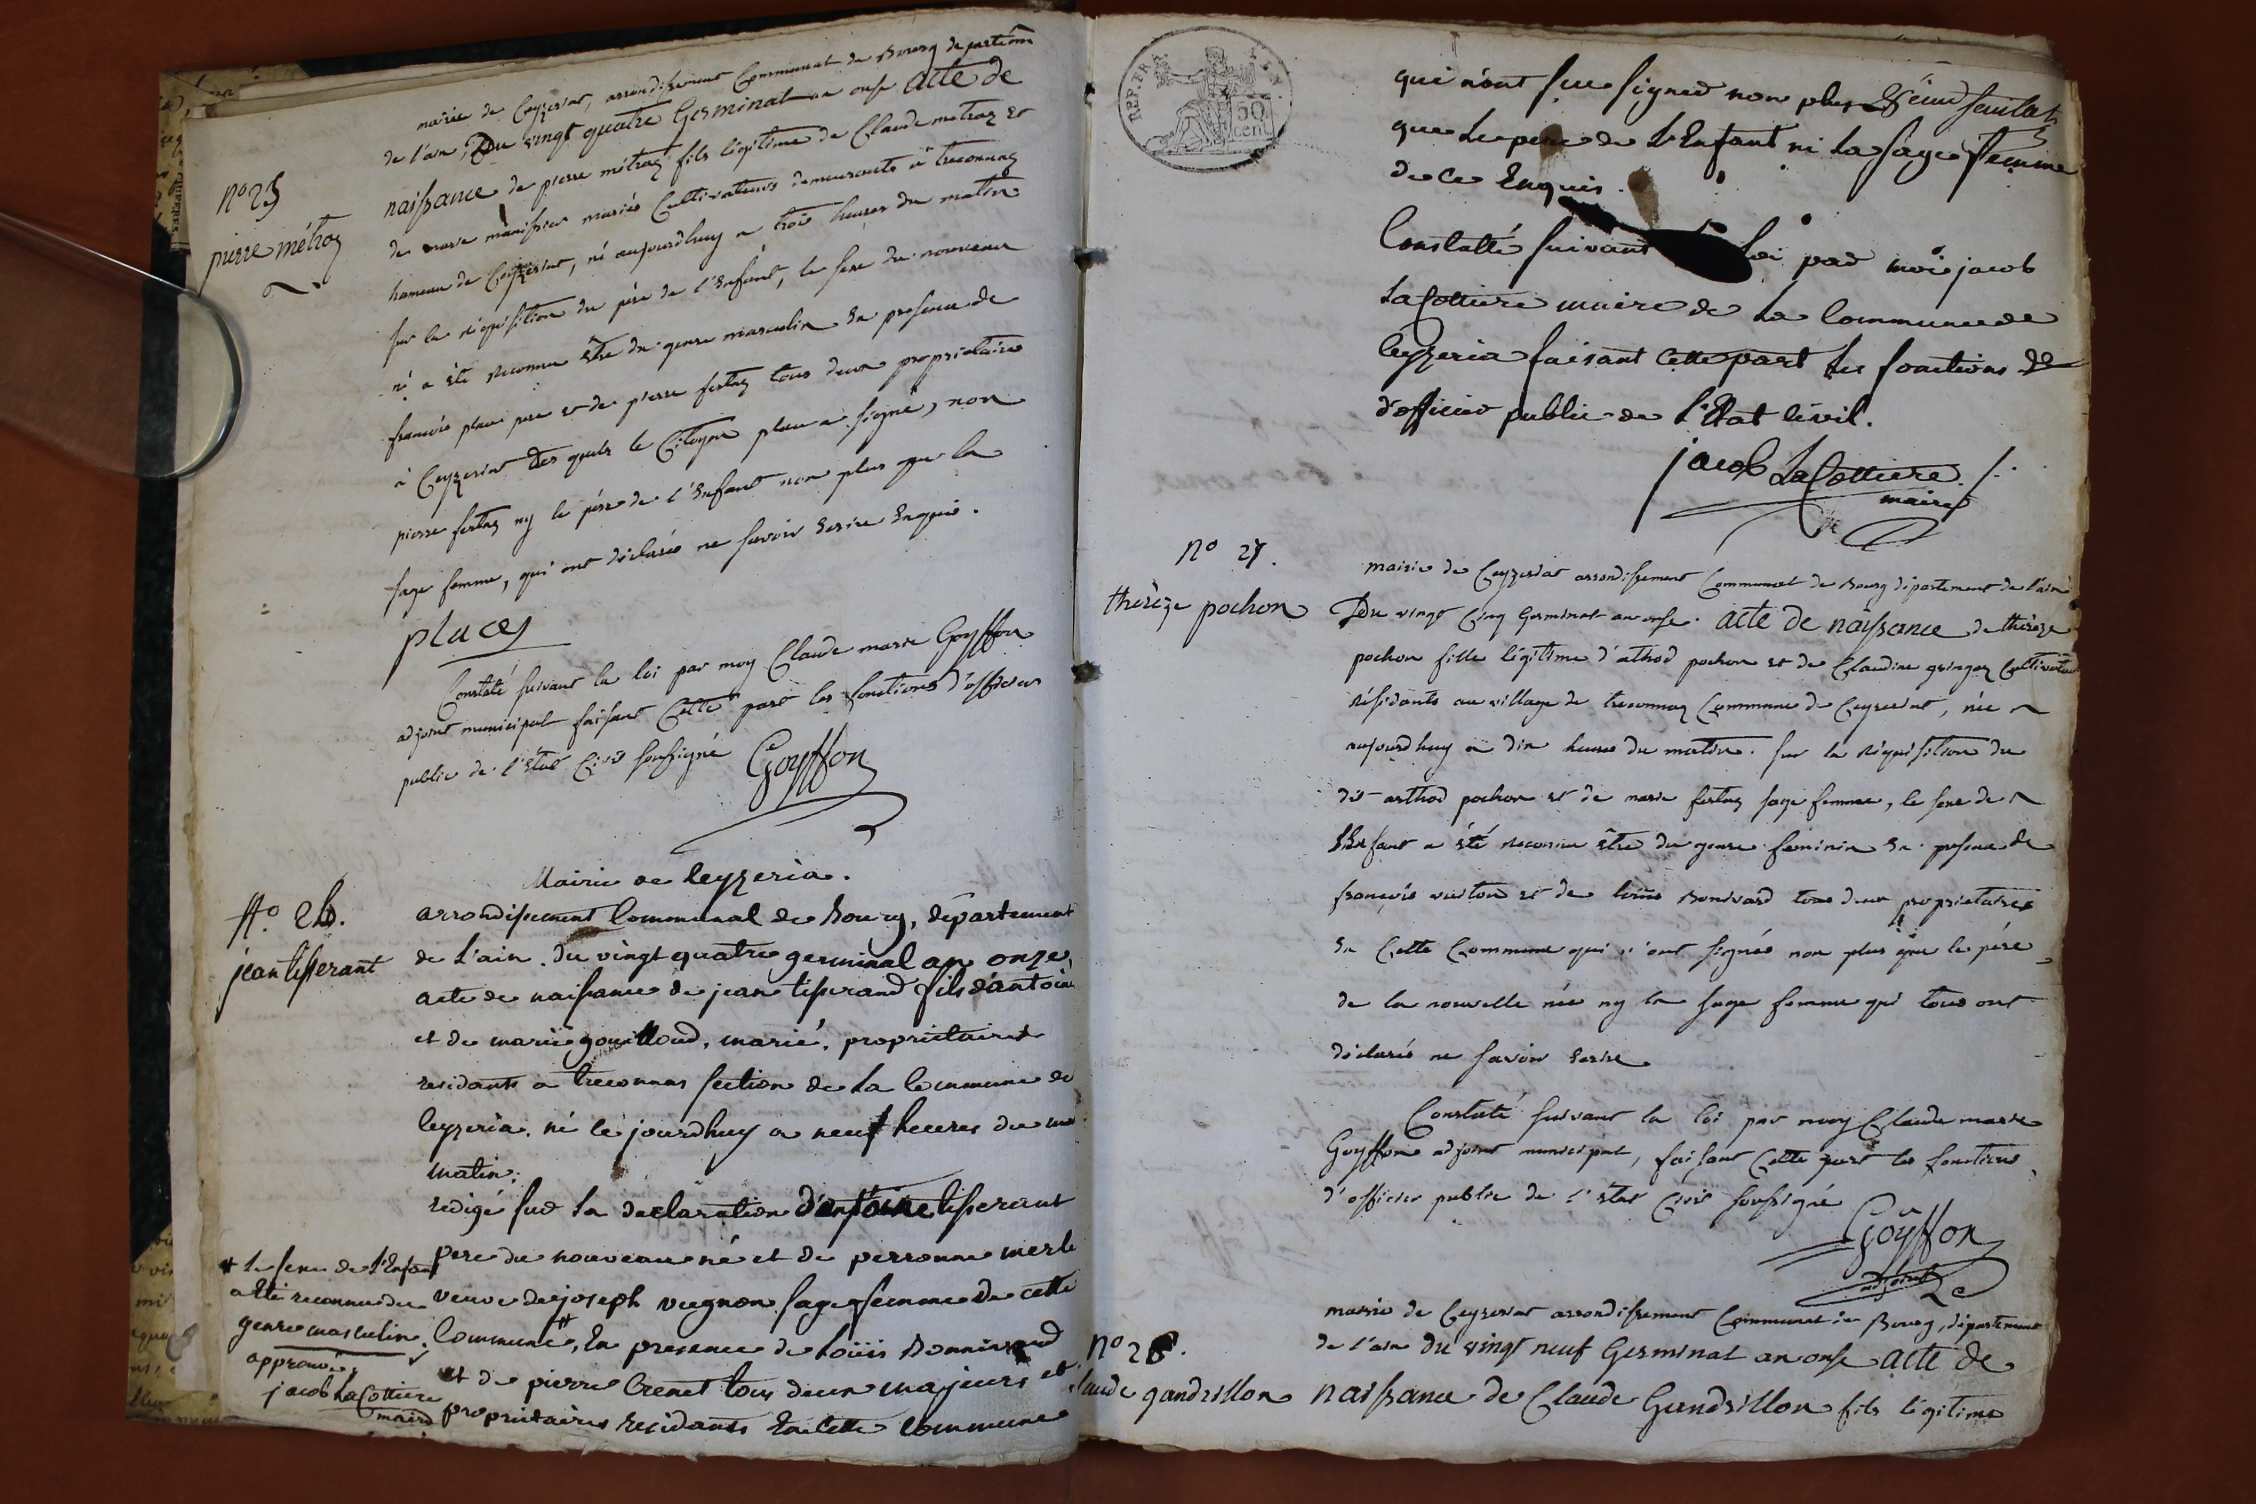 mairie de Ceyzeriat, arrondissement Communal de Bourg departem
de l'ain, Du vingt quatre Germinal an onse Acte de
N° 25
naissance de pierre métraz fils légitime de Claude métraz et
pierre métraz
de marie mariés Cultivateurs demeurants à treconnaz
hameau de Ceyzeriat, né aujourdhuy a trois heures du matin
sur la réquisition du père de l'Enfant, le sexe du nouveau
né a été reconnu être du genre masculin En presence de
francois place pere et de pierre fertaz tous deux propriétaire
à Ceyzeriat des quels le Citoyen place a signé, non
pierre fertaz ny le père de l'Enfant non plus que la
sage femme, qui ont déclarés ne savoir Ecrire Enquis.
place
Constaté suivant la loi par moy Claude marie Goyffon
adjoint municipal faisant Cette part les fonctions d'officier
public de l'état Civil soussigné Goyffon
Mairie de Ceyzeria.
N°. 26.
arrondissement Communal de Bourg, département
jean tisserant
de L'ain. du vingt quatre germinal an onze,
acte de naissance de jean tisserand fils d'antoine
et de marie gouilloud, mariés, propriétaires
residants a treconnas section de La Commune de
Ceyzeria. né ce jourdhuy a neuf heures du ma
matin.
redigé sur La declaration d'antoine tisserant
pere du nouveau né et de perronne merle
+ Le sexe de L'Enfant
a été reconnu du
genre masculin.
approuvé,
jacob LaCottiere
maire
veuve de joseph vugnon sage femme de cette
Commune, # En presence de Loüis Bonnivard
et de pierre Crenet tous deux majeurs et
propriétaires Residants En Cette Commune
REP. FRA.
50 cent.
qui n'ont sçue signer non plus
que Le pere de L'Enfant ni La sage femme
de ce Enquis.
Constatté suivant loi par moi jacob
LaCottiere maire de La Commune de
Ceyzeria faisant Cette part Les fonctions de
d'officier public de L'Etat Civil.
jacob LaCottiere
maire
N° 27.
mairie de Ceyzeriat arrondissement Communal de Bourg département de l'ain
thérèze pochon
Du vingt Cinq Germinal an onse. Acte de naissance de thérèze
pochon fille légitime d'athod pochon et de Claudine gringoz Cultivateur
résidants au village de treconnaz Commune de Ceyzeriat, née
aujourdhuy à dix heures du matin. sur la réquisition du
dit arthod pochon et de marie fertaz sage femme, le sexe de
l'Enfant a été reconnu être du genre feminin En presence de
françois vuiton et de Louis Bonivard tous deux propriétaires
En Cette Commune qui n'ont signés non plus que le père
de la nouvelle née ny la sage femme qui tous ont
déclarés ne savoir Ecrire
Constaté suivant la loi par moy Claude marie
Goyffon adjoint municipal, faisant Cette part les fonctions
d'officier public de l'état Civil soussigné
Goÿffon
adjoint
mairie de Ceyzeriat arrondissement Communal de Bourg, département
N° 28.
de l'ain du vingt neuf Germinal an onse Acte de
Claude gandrillon
naissance de Claude Gandrillon fils légitime